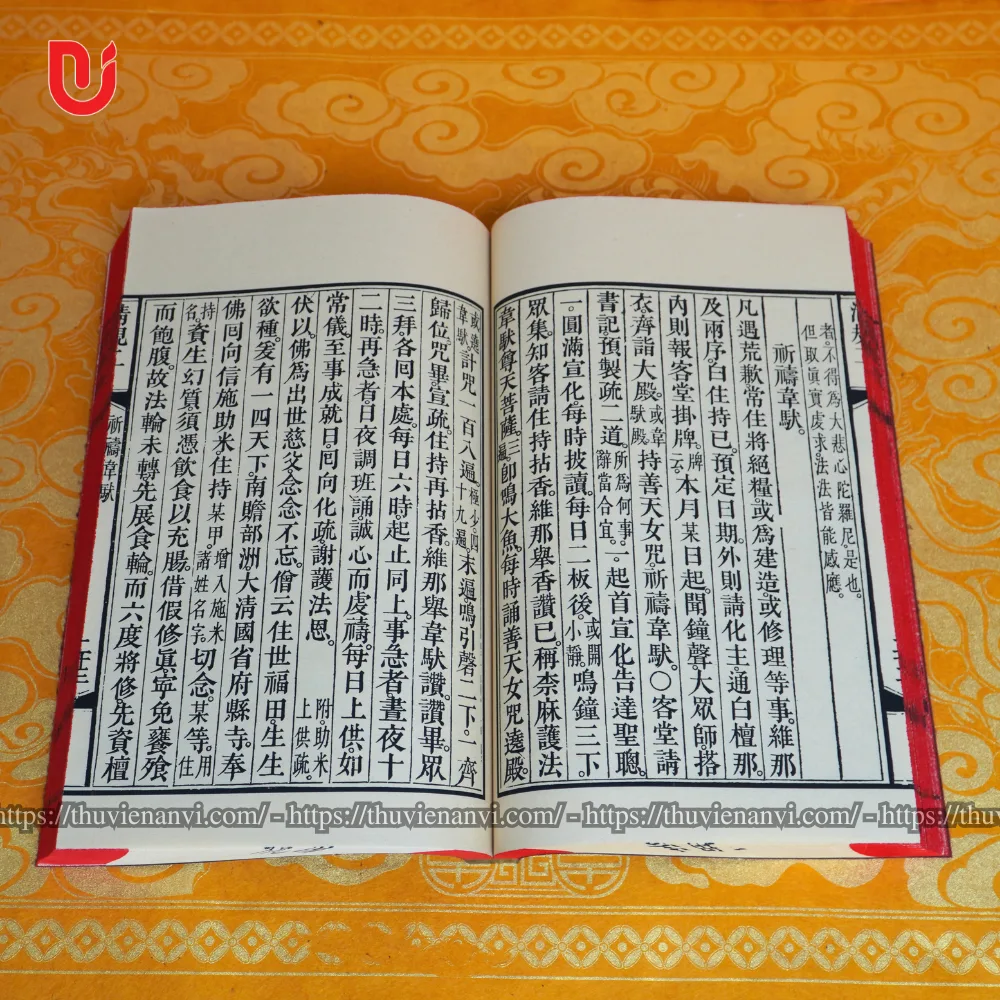 者。不得爲大悲心陀羅尼是也。
但取眞實處求。法法皆能感應。
祈禱韋馱。
凡遇荒歉。常住將絕糧。或爲建造。或修理等事。維那
及兩序。白住持已。預定日期。外則請化主。通白檀那。
內則報客堂掛牌。牌云。本月某日起。聞鐘聲。大眾師。搭
衣齊詣大殿。或韋馱殿。持善天女咒。祈禱韋馱。〇客堂請
書記預製疏二道。所爲何事。辭當合宜。一。起首宣化。告達聖聰。
一。圓滿宣化。每時披讀。每日二板後。或開小靜。鳴鐘三下。
眾集。知客請住持拈香。維那舉香讚已。稱柰麻護法
韋馱尊天菩薩。三遍。卽鳴大魚。每時誦善天女咒遶殿。
或遶韋馱。計咒一百八遍。極少。四十九遍。末遍鳴引磬二下。一齊
歸位。咒畢。宣疏。住持再拈香。維那舉韋馱讚。讚畢。眾
三拜各囘本處。每日六時。起止同上。事急者。晝夜十
二時。再急者。日夜調班誦。誠心而虔禱。每日上供。如
常儀。至事成就日。囘向化疏。謝護法恩。
附。助米上供疏。
伏以。佛爲出世慈父。念念不忘。僧云住世福田。生生
欲種。爰有一四天下。南贍部洲。大清國省府縣寺。奉
佛囘向信施助米。住持某甲。增入施米諸姓名字。切念。某等。用
持名。資生幻質。須憑飲食以充腸。借假修眞。寧免饔飧
而飽腹。故法輪未轉。先展食輪。而六度將修。先資檀
清規二
祈禱韋馱
https://thuvienanvi.com/ - https://thuvienanvi.com/ - https://thuvienanvi.com/ - https://thuvienanvi.com/